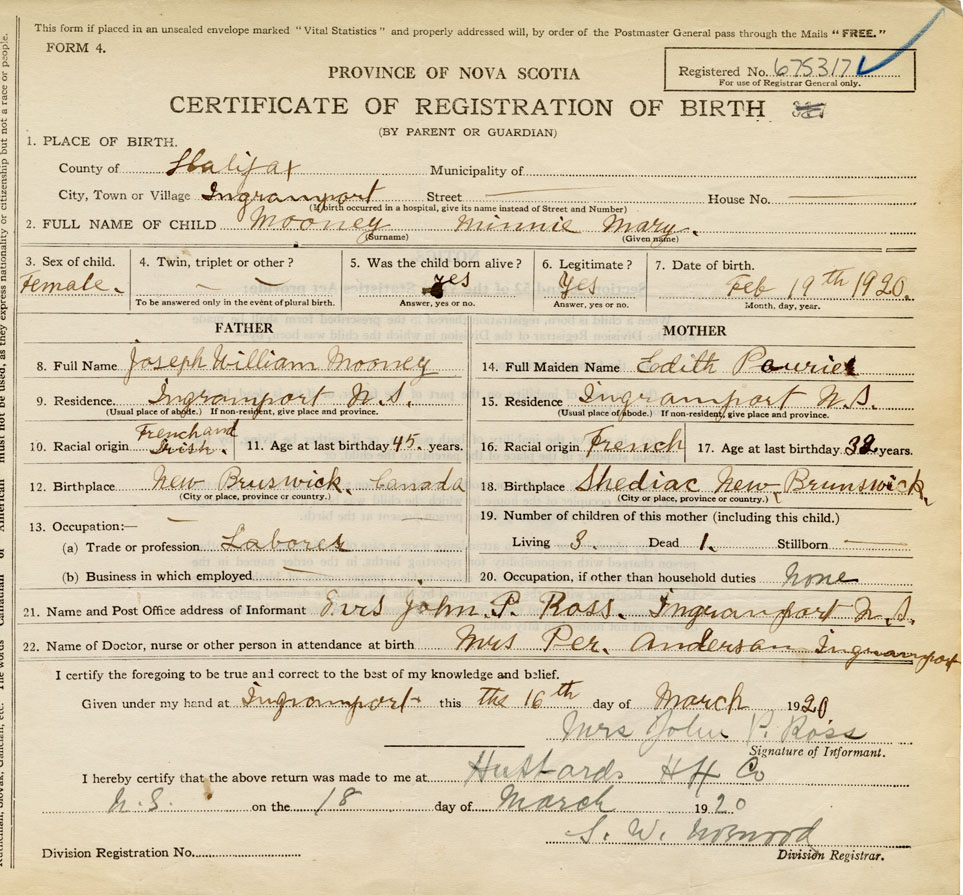 This form if placed in an unsealed envelope marked "Vital Statistics" and properly addressed will, by order of the Postmaster General pass through the Mails "FREE."
FORM 4.
Registered No. 6753171
For use of Registrar General only.
PROVINCE OF NOVA SCOTIA
CERTIFICATE OF REGISTRATION OF BIRTH
(BY PARENT OR GUARDIAN)
1. PLACE OF BIRTH.
County of Halifax Municipality of
City, Town or Village Ingramport Street — House No. —
(If birth occurred in a hospital, give its name instead of Street and Number)
2. FULL NAME OF CHILD Mooney Minnie Mary.
(Surname) (Given name)
3. Sex of child. 4. Twin, triplet or other? 5. Was the child born alive? 6. Legitimate? 7. Date of birth.
Female. — — yes Yes Feb 19th 1920.
To be answered only in the event of plural birth. Answer, yes or no. Answer, yes or no. Month, day, year.
FATHER
8. Full Name Joseph William Mooney
9. Residence Ingramport N.S.
(Usual place of abode.) If non-resident, give place and province.
10. Racial origin French and Irish. 11. Age at last birthday 45. years.
12. Birthplace New Bruswick. Canada
(City or place, province or country.)
13. Occupation:— —
(a) Trade or profession Laborer
(b) Business in which employed —
MOTHER
14. Full Maiden Name Edith Pourier
15. Residence Ingramport N.S.
(Usual place of abode.) If non-resident, give place and province.
16. Racial origin French 17. Age at last birthday 38 years.
18. Birthplace Shediac New Brunswick
(City or place, province or country.)
19. Number of children of this mother (including this child.)
Living 3. Dead 1. Stillborn —
20. Occupation, if other than household duties None
21. Name and Post Office address of Informant John P. Ross. Ingramport N.S.
22. Name of Doctor, nurse or other person in attendance at birth Mrs Per. Anderson Ingramport
I certify the foregoing to be true and correct to the best of my knowledge and belief.
Given under my hand at Ingramport this the 16th day of March 1920
Mrs John P. Ross
Signature of Informant.
I hereby certify that the above return was made to me at Hubbards Hfx Co
N.S. on the 18 day of March 1920
S. W.
Division Registrar.
Division Registration No.